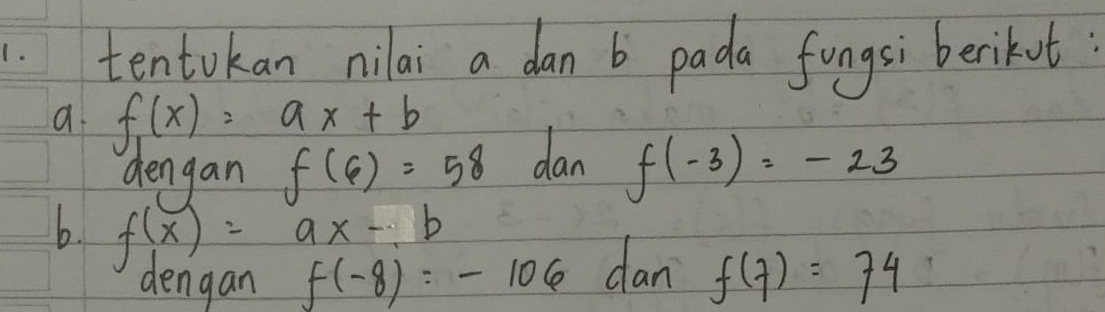 1. tentukan nilai a dan b pada fungsi berikut :
a. f(x) = ax + b
dengan f(6) = 58 dan f(-3) = - 23
b. f(x) = ax - b
dengan f(-8) = - 106 dan f(7) = 74